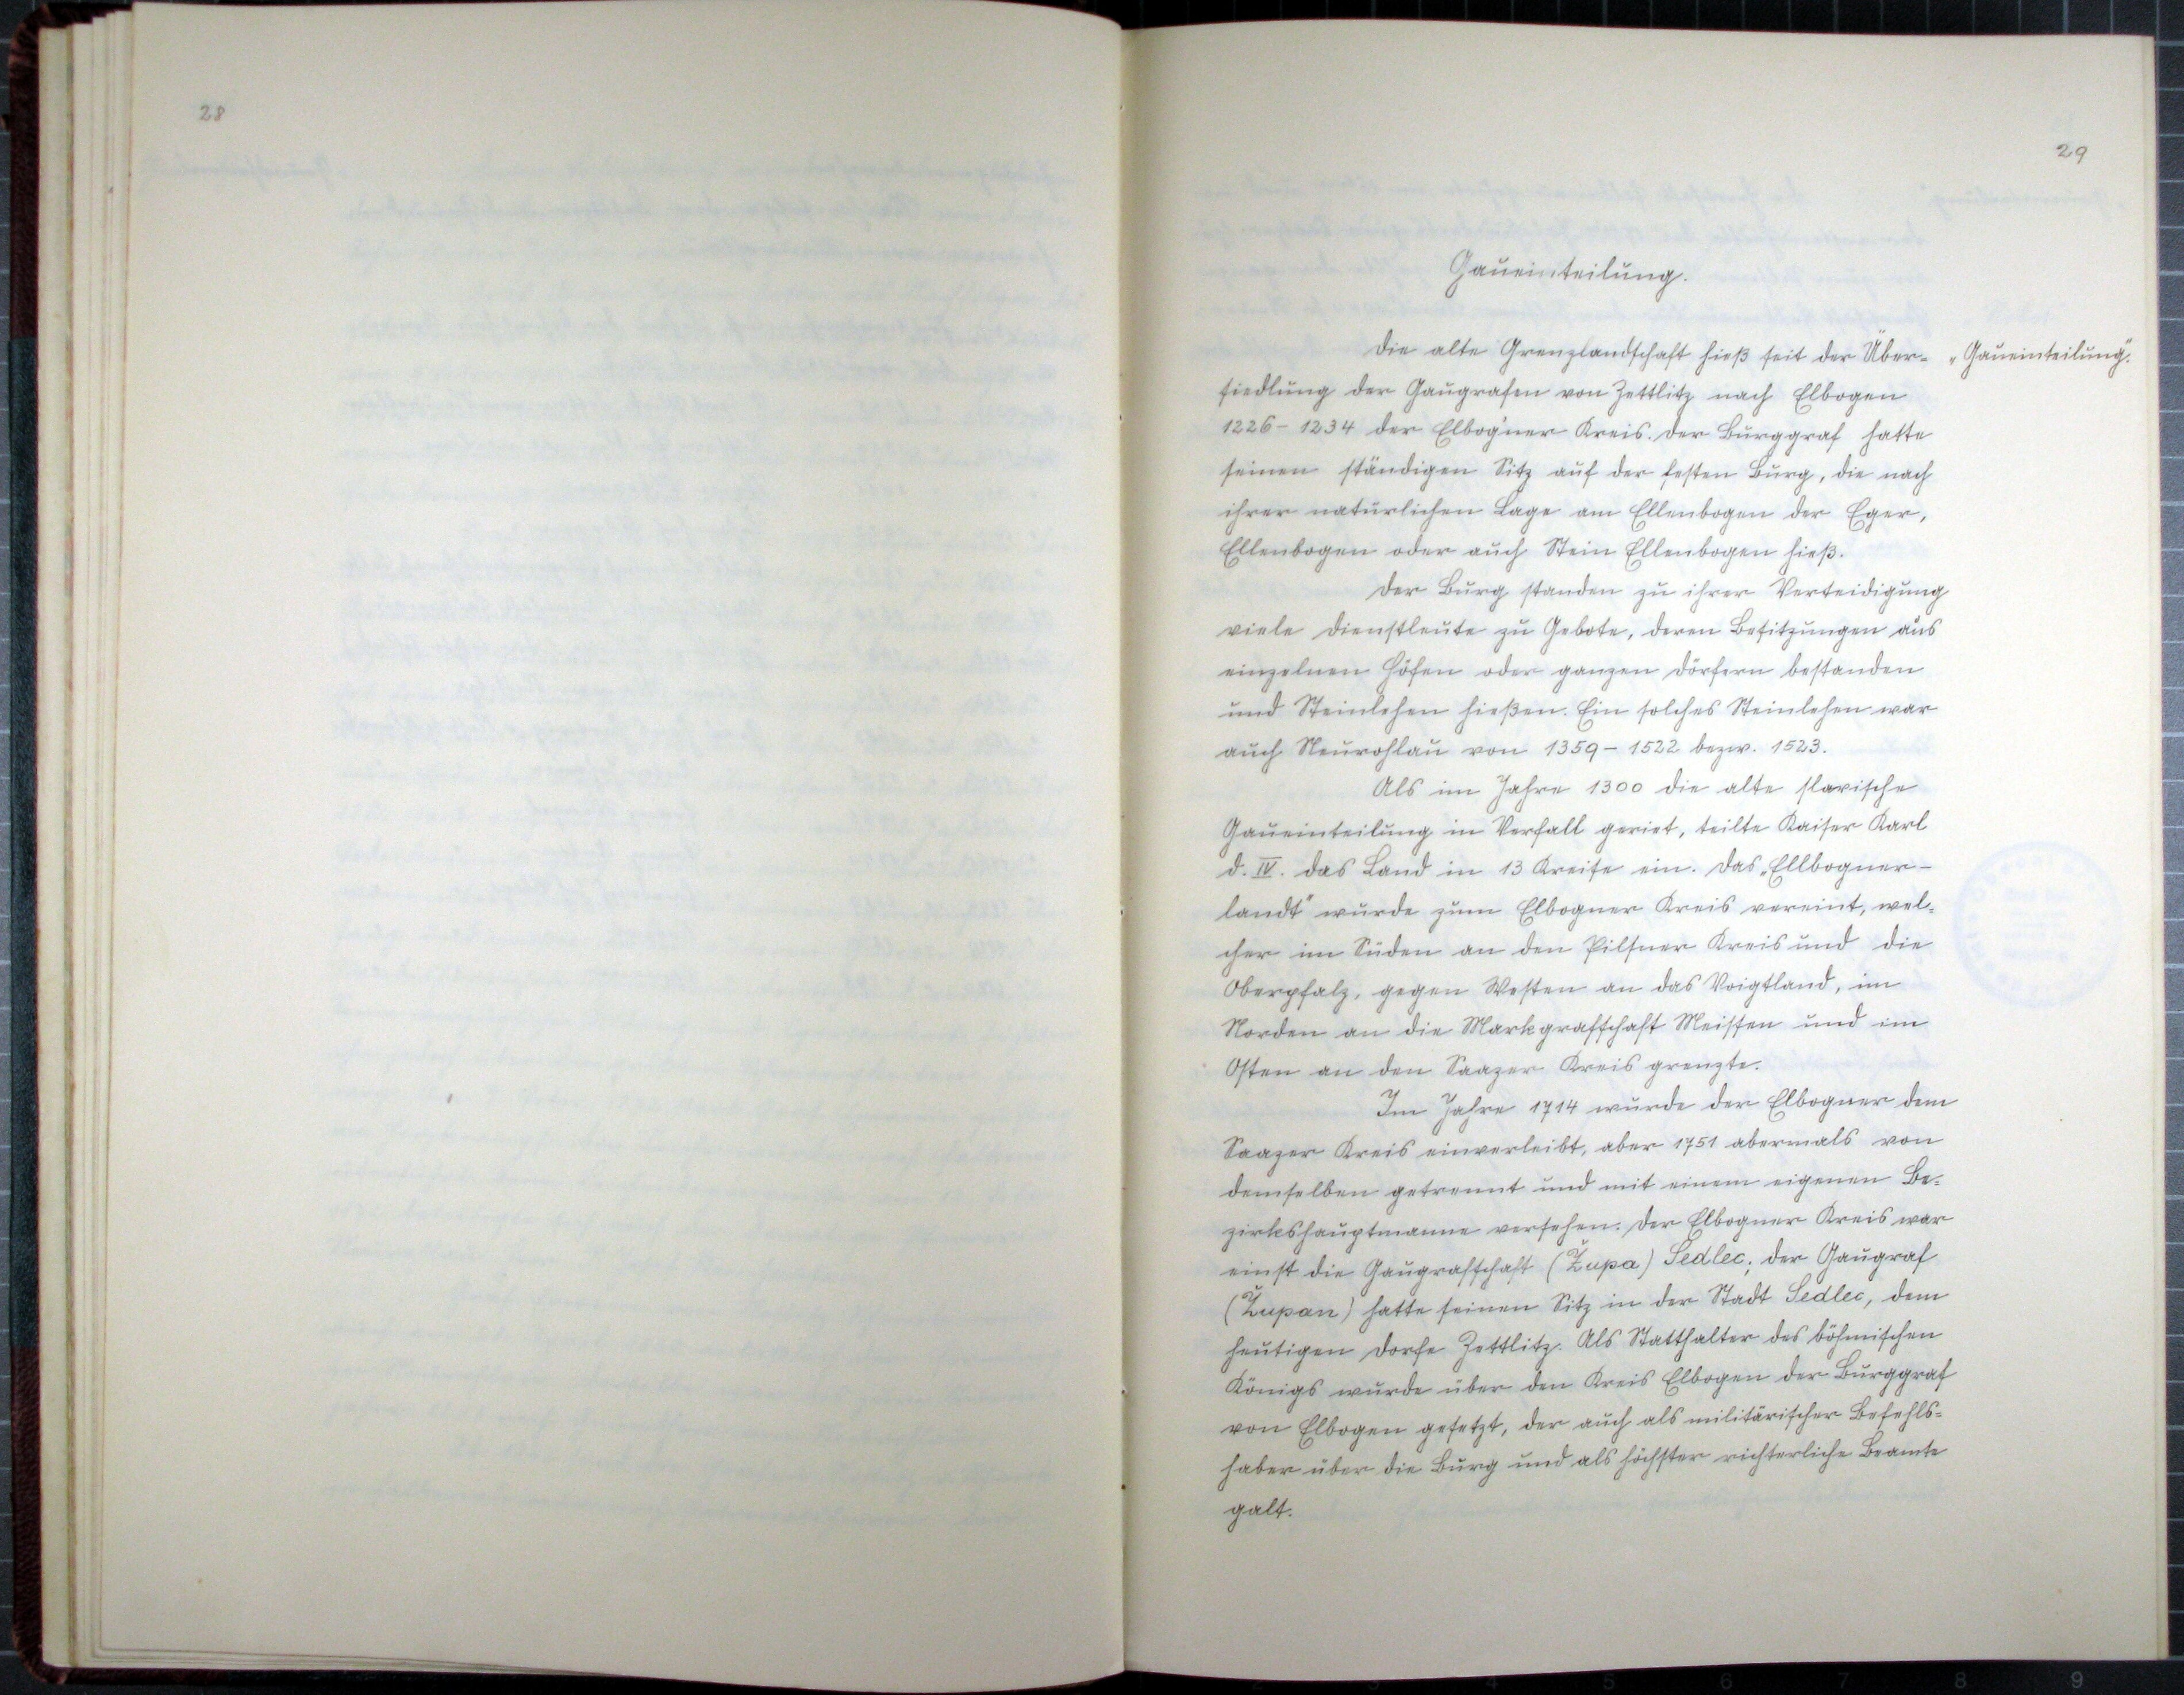 28
29
Gaueinteilung.
Die alte Grenzlandschaft hieß seit der Über- „Gaueinteilung".
siedlung der Gaugrafen von Zettlitz nach Elbogen
1226 - 1234 der Elbogner Kreis. Der Burggraf hatte
seinen ständigen Sitz auf der festen Burg, die nach
ihrer natürlichen Lage am Ellenbogen der Eger,
Ellenbogen oder auch Stein Ellenbogen hieß.
Der Burg standen zu ihrer Verteidigung
viele Dienstleute zu Gebote, deren Besitzungen aus
einzelnen Höfen oder ganzen Dörfern bestanden
und Steinlehen hießen. Ein solches Steinlehen war
auch Neurohlau von 1359 - 1522 bezw. 1523.
Als im Jahre 1300 die alte slavische
Gaueinteilung in Verfall geriet, teilte Kaiser Karl
d. IV. das Land in 13 Kreise ein. Das „Ellbogner-
landt" wurde zum Elbogner Kreis vereint, wel-
cher im Süden an den Pilsner Kreis und die
Oberpfalz, gegen Westen an das Voigtland, im
Norden an die Markgrafschaft Meissen und im
Osten an den Saazer Kreis grenzte.
Im Jahre 1714 wurde der Elbogner dem
Saazer Kreis einverleibt, aber 1751 abermals von
demselben getrennt und mit einem eigenen Be-
zirkshauptmanne versehen. Der Elbogner Kreis war
einst die Gaugrafschaft (Župa) Sedlec; der Gaugraf
(Župan) hatte seinen Sitz in der Stadt Sedlec, dem
heutigen Dorfe Zettlitz. Als Statthalter des böhmischen
Königs wurde über den Kreis Elbogen der Burggraf
von Elbogen gesetzt, der auch als militärischer Befehls-
haber über die Burg und als höchster richterliche Beamte
galt.
2 3 4 5 6 7 8 9